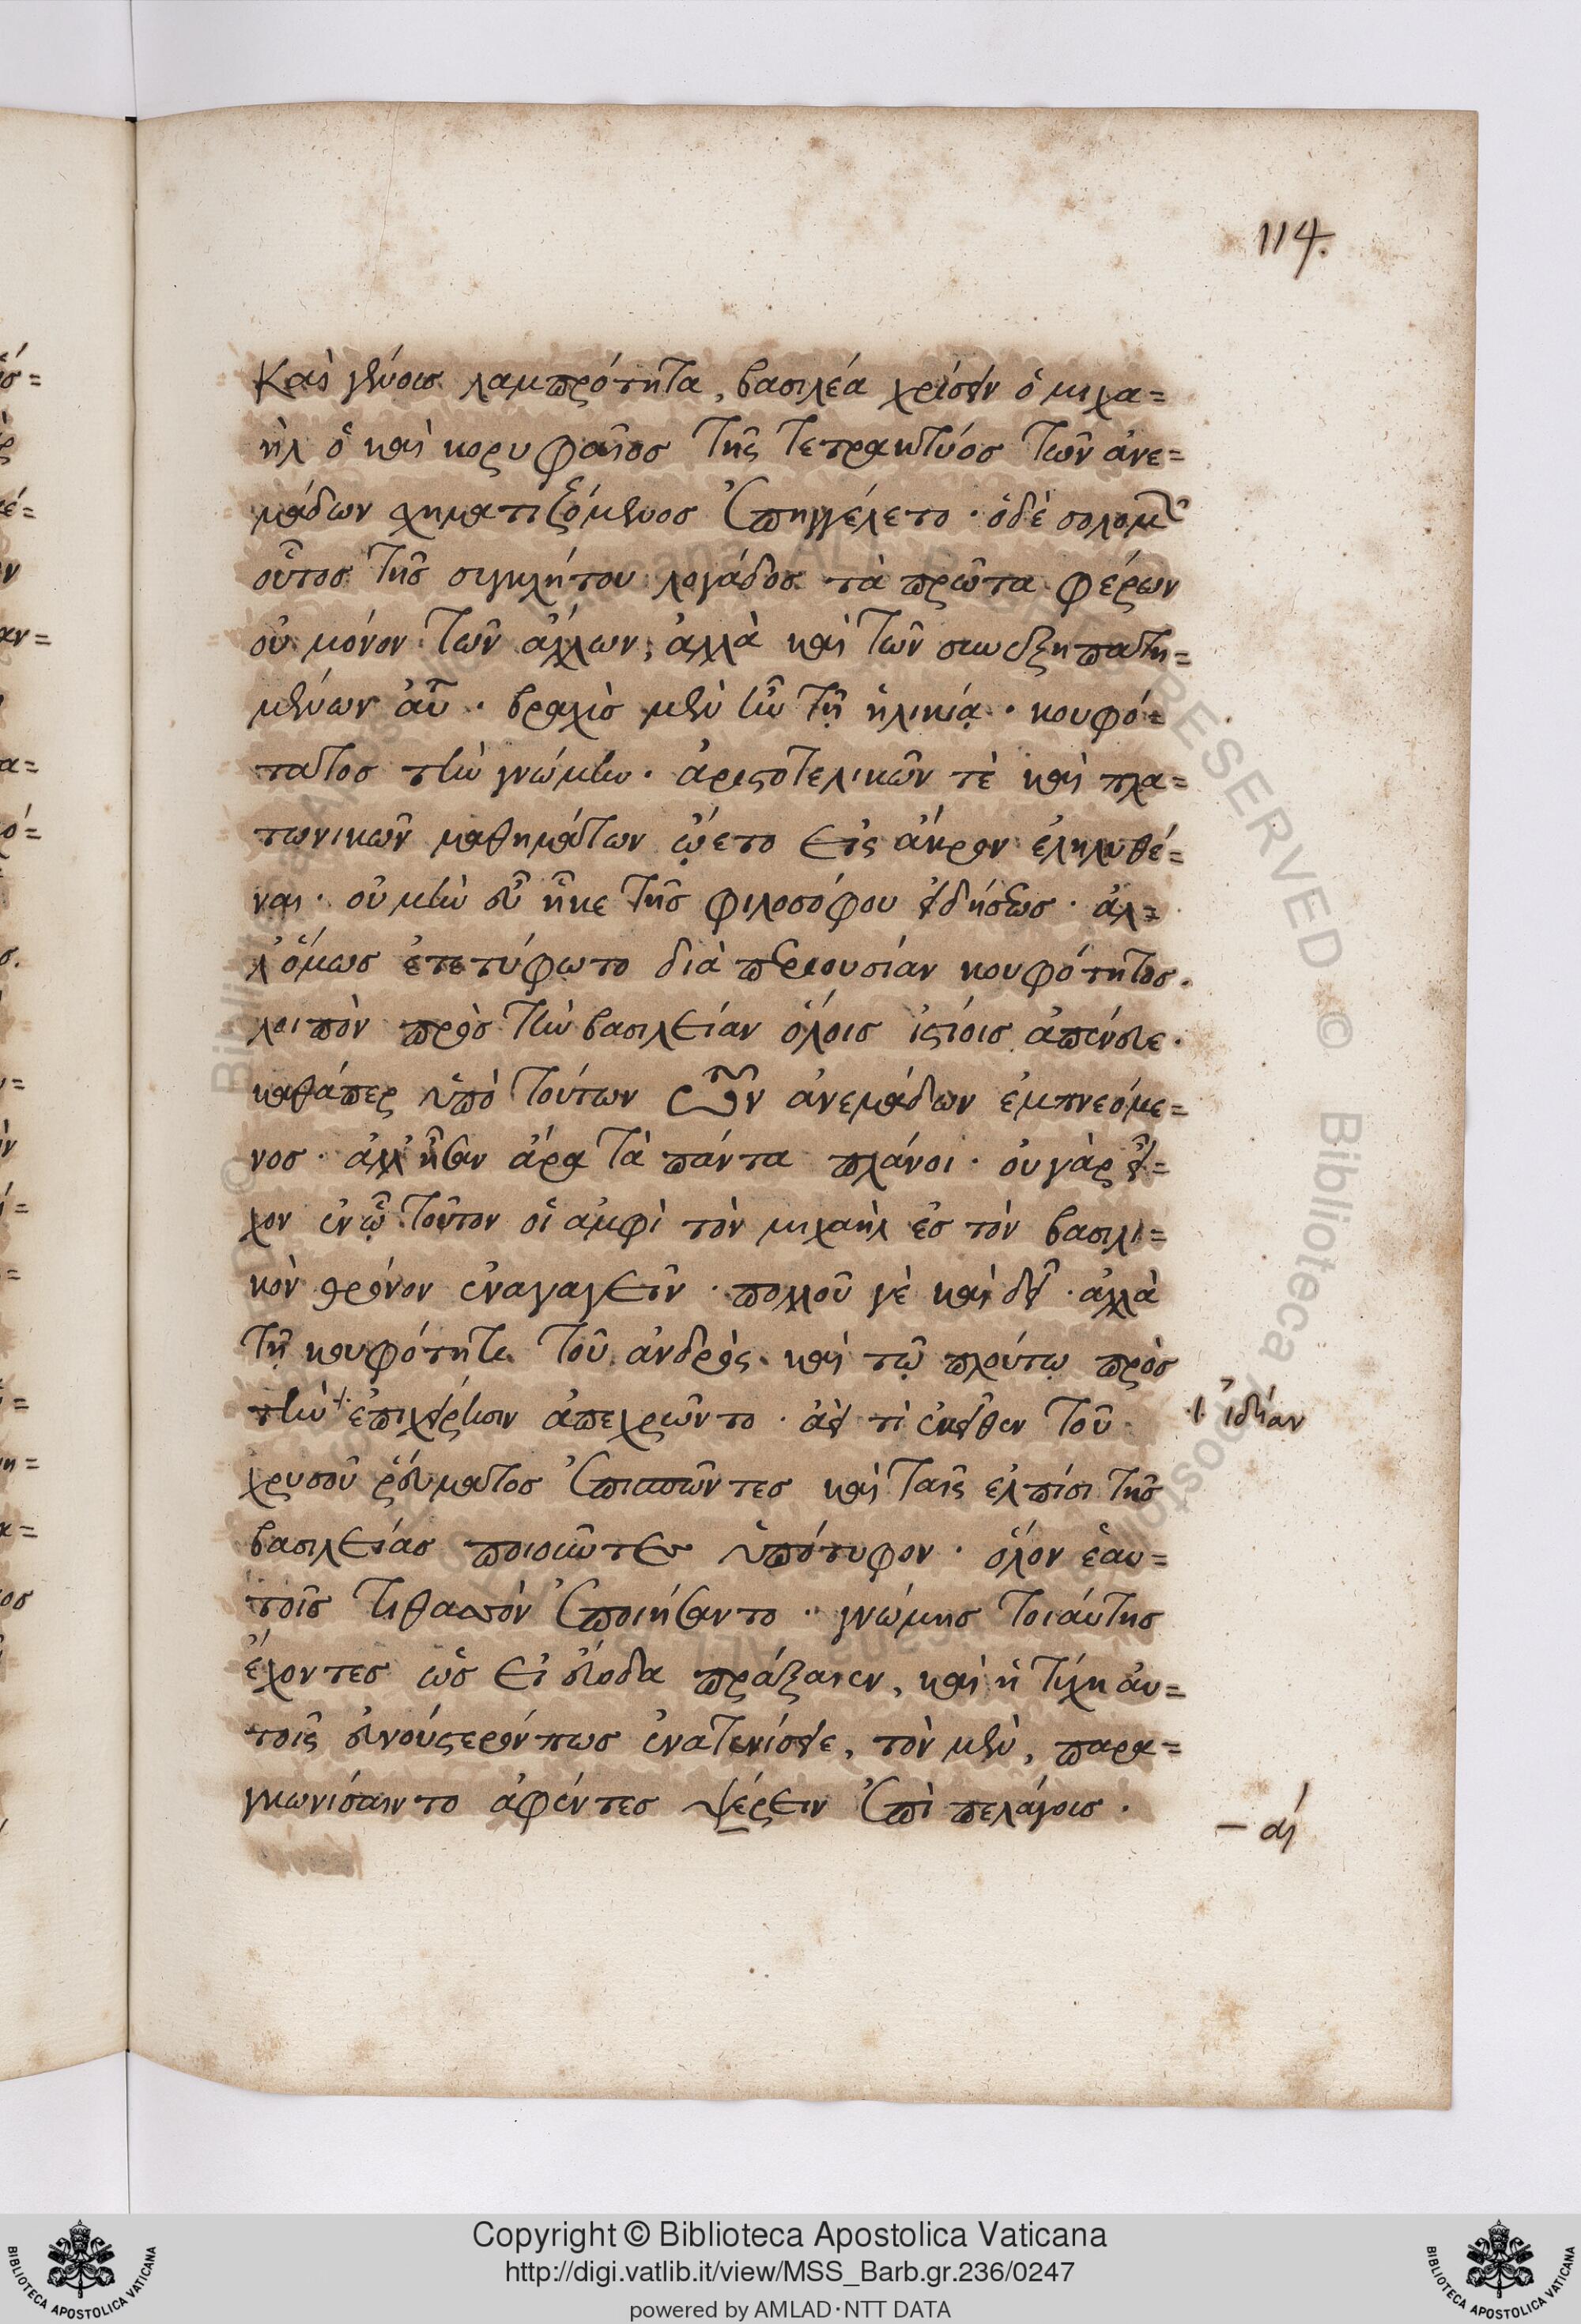 114.
καὶ γένους λαμπρότητα, βασιλέα χρίσειν ὁ μιχα=
ὴλ ὁ καὶ κορυφαῖος τῆς τετρακτύος τῶν ἀνε=
μάδων χηματιζόμενος ἐπηγγέλετο · ὁδὲ σολομ
οὗτος τῆς συγκλήτου λογάδος τὰ πρῶτα φέρων
οὐ μόνον τῶν ἄλλων, ἀλλὰ καὶ τῶν συνεξηπατη=
μένων αὐτ · βραχὺς μὲν ἦν τῇ ἡλικίᾳ · κουφό=
τατος τὴν γνώμην · ἀριστοτελικῶν τὲ καὶ πλα=
τωνικῶν μαθημάτων ᾤετο εἰς ἄκρον ἐληλυθέ=
ναι · οὐ μὴν εὖ ἧκε τῆς φιλοσόφου εἰδήσεως · ἀλ=
λ' ὅμως ἐτετύφωτο διὰ περιουσίαν κουφότητος.
λοιπὸν πρὸς τὴν βασιλείαν ὅλοις ἱστίοις ἀπένευε ·
καθάπερ ὑπὸ τούτων τῶν ἀνεμάδων ἐμπνεόμε=
νος · ἀλλ' ἦσαν ἄρα τὰ πάντα πλάνοι · οὐ γὰρ εἶ=
χον ἐνῷ τοῦτον οἱ ἀμφὶ τὸν μιχαὴλ ἐς τὸν βασιλι=
κὸν θρόνον ἐναγαγεῖν · πολλοῦ γὲ καὶ δεῖ · ἀλλὰ
τῇ κουφότητι τοῦ ἀνδρὸς · καὶ τῷ πλούτῳ πρὸς
τὴν ἐπιχείρησιν ἀπεχρῶντο · ἀεί τι ἐκεῖθεν τοῦ
ἰδίαν
χρυσοῦ ῥεύματος ἐπισπῶντες καὶ ταῖς ἐλπίσι τῆς
βασιλείας ποιοῦντες ὑπότυφον · ὅλον ἑαυ=
τοῖς τιθασὸν ἐποιήσαντο · γνώμης τοιαύτης
ἔχοντες ὡς εἰ εὔοδα πράξαιεν, καὶ ἡ τύχη αὐ=
τοῖς εὐνούστερόν πως ἐνατενίσειε, τὸν μὲν, παρα=
γκωνίσαιντο ἀφέντες ψέρειν ἐπὶ πελάγους ·
– αί